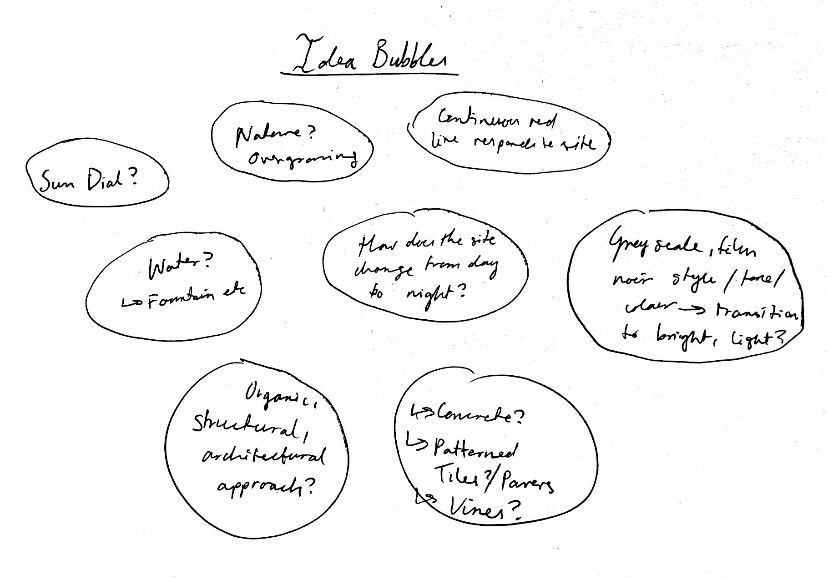 Idea Bubbles
Sun Dial?
Nature?
Overgrowing
Continuous red
line responds to site
Water?
↳ Fountain etc
How does the site
change from day
to night?
Grey scale, film
noir style / tone /
colour → transition
to bright, light?
Organic,
structural,
architectural
approach?
↳ Concrete?
↳ Patterned
Tiles?/Pavers
↳ Vines?